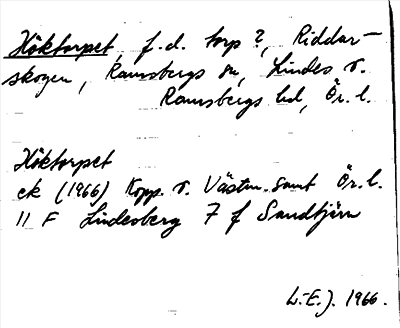 Höktorpet, f.d. torp?, Riddar-
skogen, Ramsbergs sn, Lindes o.
Ramsbergs hd, Ör. l.
Höktorpet
ek (1966) Kopp. o. Västm. samt Ör. l.
11 F Lindesberg 7 f Sandtjärn
L-E. J. 1966.